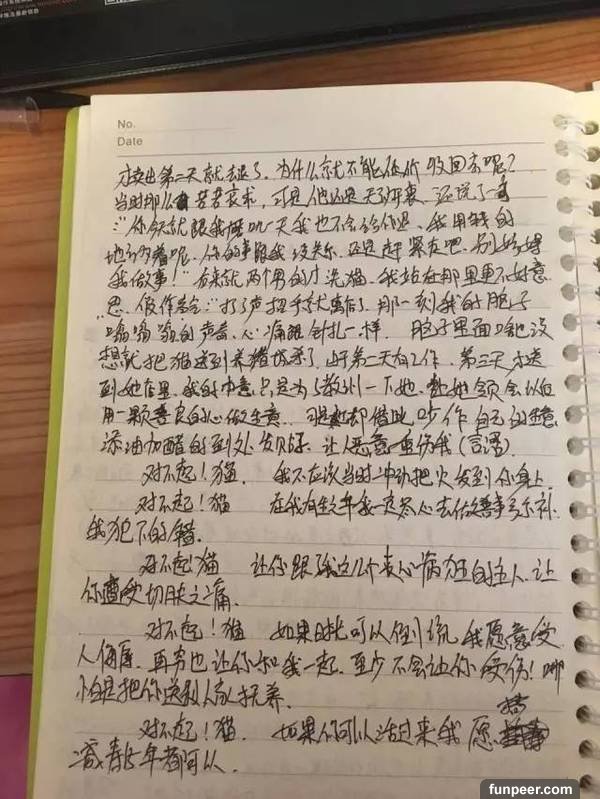 No.
Date
才卖出第二天就去退了，为什么就不能低价收回去呢？
当时那么苦苦哀求，可是他还是无动于衷，还说了一句
："你今天就跟我 一天我也不会给你退，我用钱的
地方多着呢。你的事跟我没关系，还是赶紧走吧，别妨碍
我做事！"后来就两个男的才洗猫，我站在那里更不好意
思，假作 ：打了声招呼就离开了，那一刻我的脑子
嗡嗡嗡的声音，心痛跟针扎一样，脑子里面 没
想就把猫送到养猪场杀了，由于第二天有工作，第三天才送
到她店里，我的本意只是为了教训一下她，让她领会以后
用一颗善良的心做生意，可她却借此炒作自己的生意
添油加醋的到处发 ，让人恶意重伤我（言语）
对不起！猫， 我不应该当时冲动把火发到你身上，
对不起！猫 在我有生之年我一定尽心去做善事多弥补
我犯下的错。
对不起！猫 让你跟了我这么个丧心病狂的主人，让
你遭受切肤之痛。
对不起！猫 如果时光可以倒流，我愿意受
人侮辱，再穷也让你和我一起，至少不会让你受伤！哪
怕是把你送到人家抚养。
对不起！猫， 如果你可以活过来我愿 折
减寿5年都可以。
funpeer.com